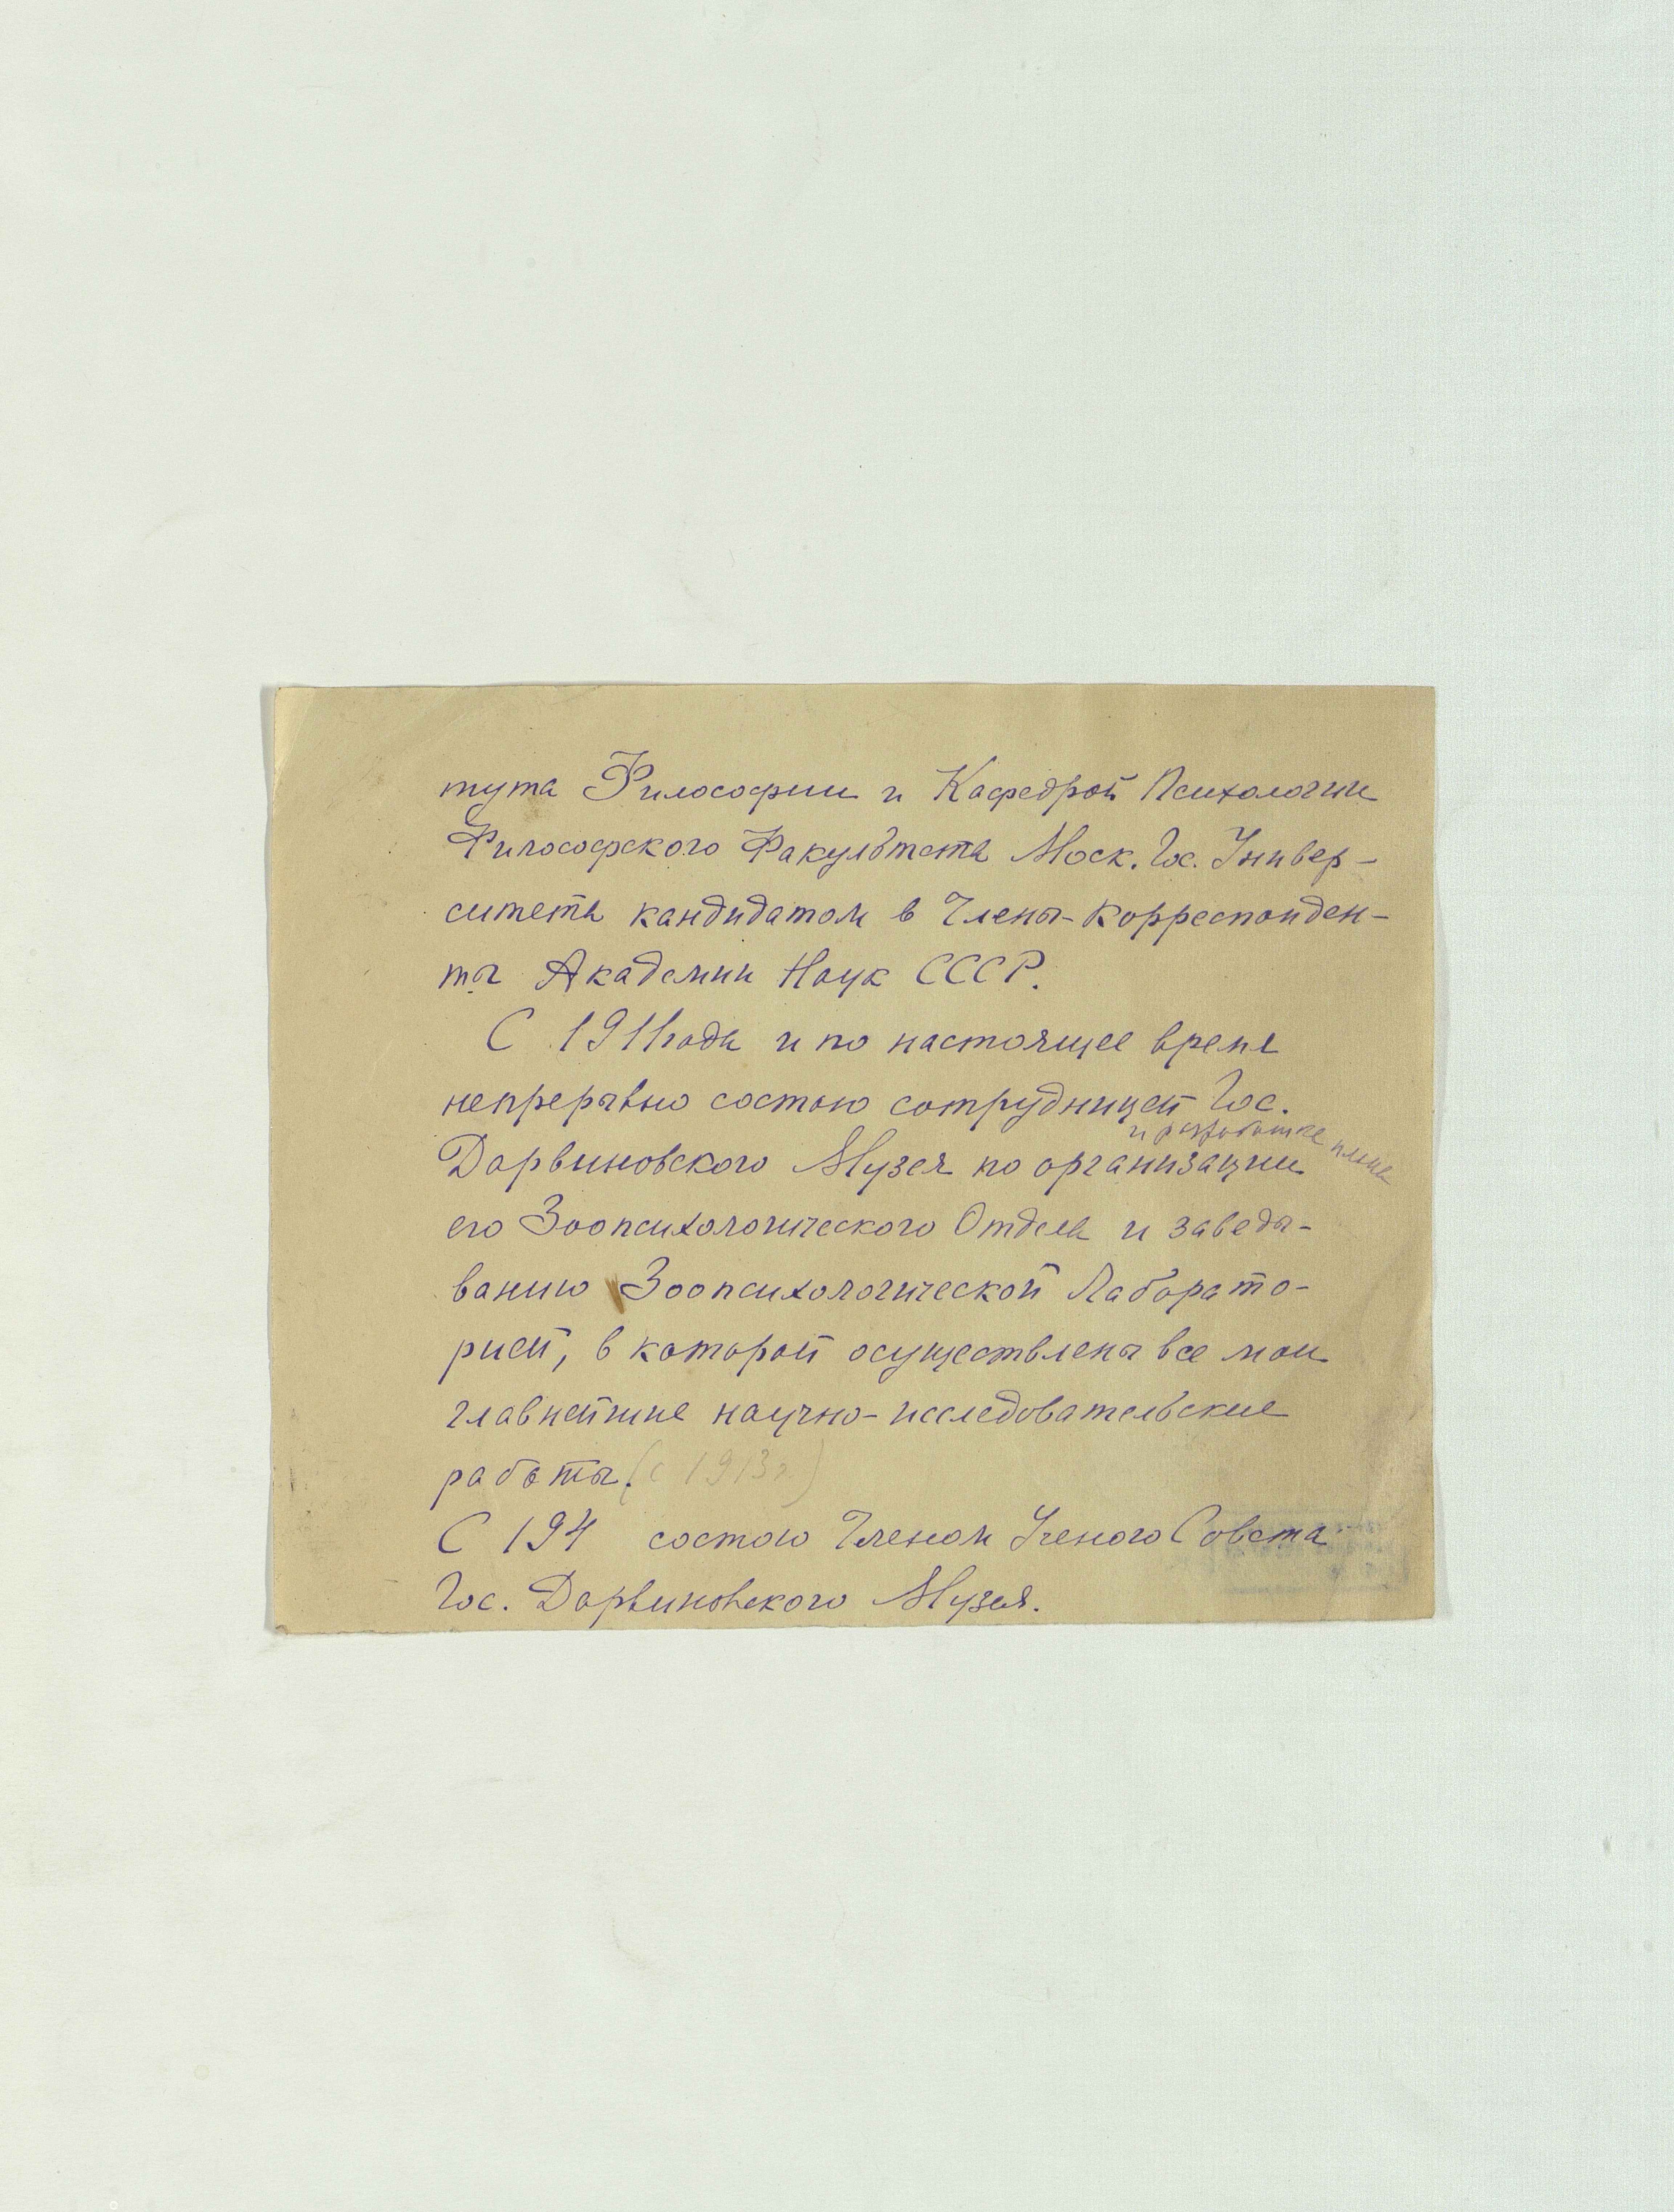 тута Философии и Кафедрой Психологии
Философского Факультета Моск. Гос. Универ-
ситета кандидатом в Члены-корреспонден-
ты Академии Наук СССР.
С 1911 года и по настоящее время
непрерывно состою сотрудницей Гос.
и разработке плана
Дарвиновского Музея по организации
его Зоопсихологического Отдела и заведы-
ванию Зоопсихологической Лаборато-
рией, в которой осуществлены все мои
главнейшие научно-исследовательские
работы. (с 1913 г.)
С 194 состою Членом Ученого Совета
Гос. Дарвиновского Музея.